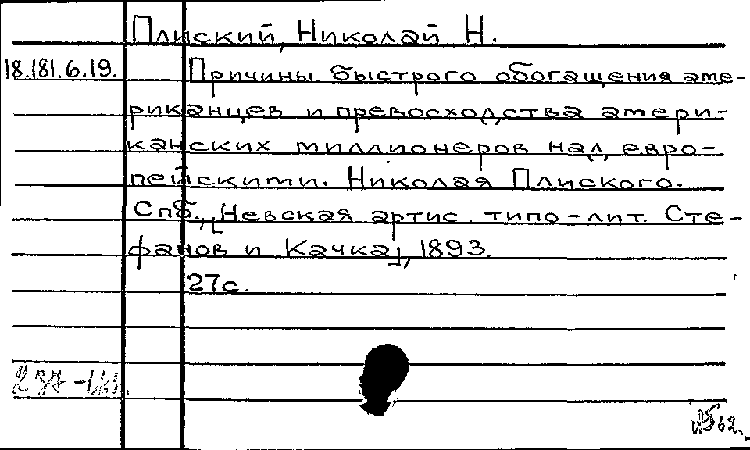 Плиский, Николай Н.
18.181.6.19. Причины быстрого обогащения аме-
риканцев и превосходства амери-
канских миллионеров над евро-
пейскими. Николая Плиского.
Спб., [Невская артис. типо-лит. Сте-
фанов и Качка], 1893.
27с.